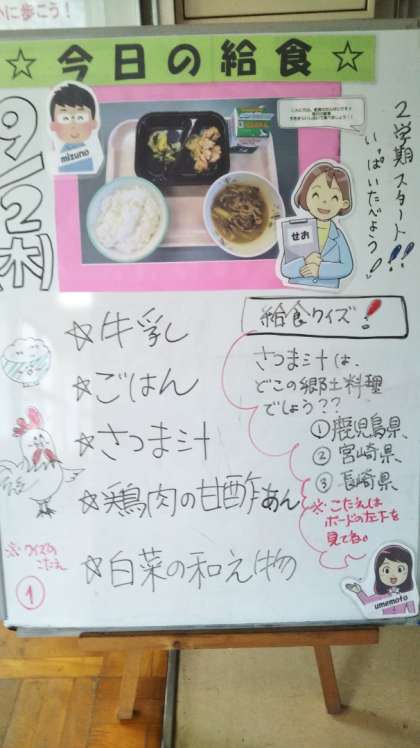 に歩こう！
☆今日の給食☆
9/2(木)
mizuno
せお
2学期スタート!!
いっぱいたべよう!
☆牛乳
☆ごはん
☆さつま汁
☆鶏肉の甘酢あん
☆白菜の和え物
給食クイズ!
さつま汁は、
どこの郷土料理
でしょう??
①鹿児島県、
②宮崎県、
③長崎県、
※こたえは
ボードの左下を
見てね。
umemoto
※クイズの
こたえ
①